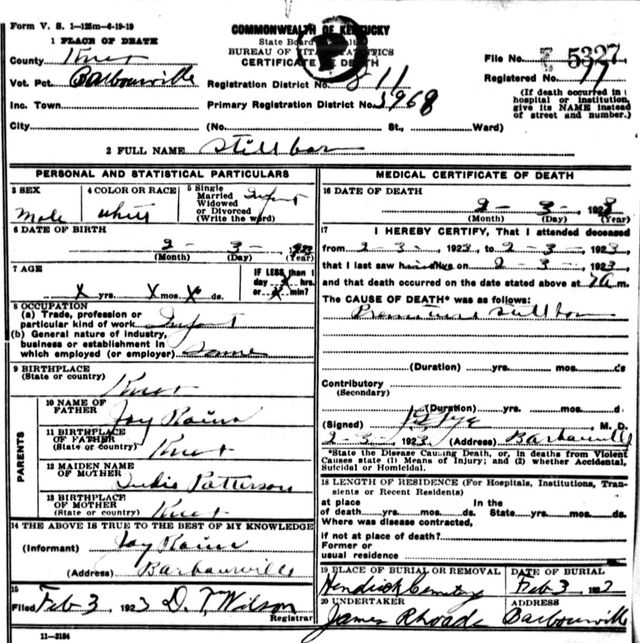 Form V. S. 1-125m-6-19-19
COMMONWEALTH OF KENTUCKY
State Board of Health
BUREAU OF VITAL STATISTICS
CERTIFICATE OF DEATH
1 PLACE OF DEATH
County Knox
File No. 5327
Vot. Pct. Barbourville
Registration District No. 811
Registered No. 77
Inc. Town
Primary Registration District No. 5968
(If death occurred in a hospital or institution, give its NAME instead of street and number.)
City (No. St., Ward)
2 FULL NAME Stillborn
PERSONAL AND STATISTICAL PARTICULARS
3 SEX
Male
4 COLOR OR RACE
White
5 Single
Married
Widowed
or Divorced
(Write the word)
Infant
6 DATE OF BIRTH
2-3-1923
(Month) (Day) (Year)
7 AGE
X yrs. X mos. X ds.
IF LESS than 1
day X hrs.
or X min?
8 OCCUPATION
(a) Trade, profession or
particular kind of work Infant
(b) General nature of industry,
business or establishment in
which employed (or employer) Same
9 BIRTHPLACE
(State or country)
Knox
PARENTS
10 NAME OF
FATHER
Jay
11 BIRTHPLACE
OF FATHER
(State or country)
Knox
12 MAIDEN NAME
OF MOTHER
Patterson
13 BIRTHPLACE
OF MOTHER
(State or country)
Knox
14 THE ABOVE IS TRUE TO THE BEST OF MY KNOWLEDGE
(Informant) Jay
(Address) Barbourville
15
Filed Feb 3, 1923 D. T. Wilson
Registrar
11-3184
MEDICAL CERTIFICATE OF DEATH
16 DATE OF DEATH
2-3-, 1923
(Month) (Day) (Year)
17 I HEREBY CERTIFY, That I attended deceased
from 2-3-, 1923, to 2-3-, 1923,
that I last saw alive on 2-3-, 1923,
and that death occurred on the date stated above at m.
The CAUSE OF DEATH* was as follows:
Premature stillborn
(Duration) yrs. mos. ds.
Contributory
(Secondary)
(Duration) yrs. mos. d.
(Signed) M. D.
2-3-, 1923 (Address) Barbourville
*State the Disease Causing Death, or, in deaths from Violent
Causes state (1) Means of Injury; and (2) whether Accidental,
Suicidal or Homicidal.
18 LENGTH OF RESIDENCE (For Hospitals, Institutions, Tran-
sients or Recent Residents)
at place In the
of death yrs. mos. ds. State yrs. mos. ds.
Where was disease contracted,
if not at place of death?
Former or
usual residence
19 PLACE OF BURIAL OR REMOVAL
Hendrick Cemetery
DATE OF BURIAL
Feb 3, 192
20 UNDERTAKER
James Rhoads
ADDRESS
Barbourville